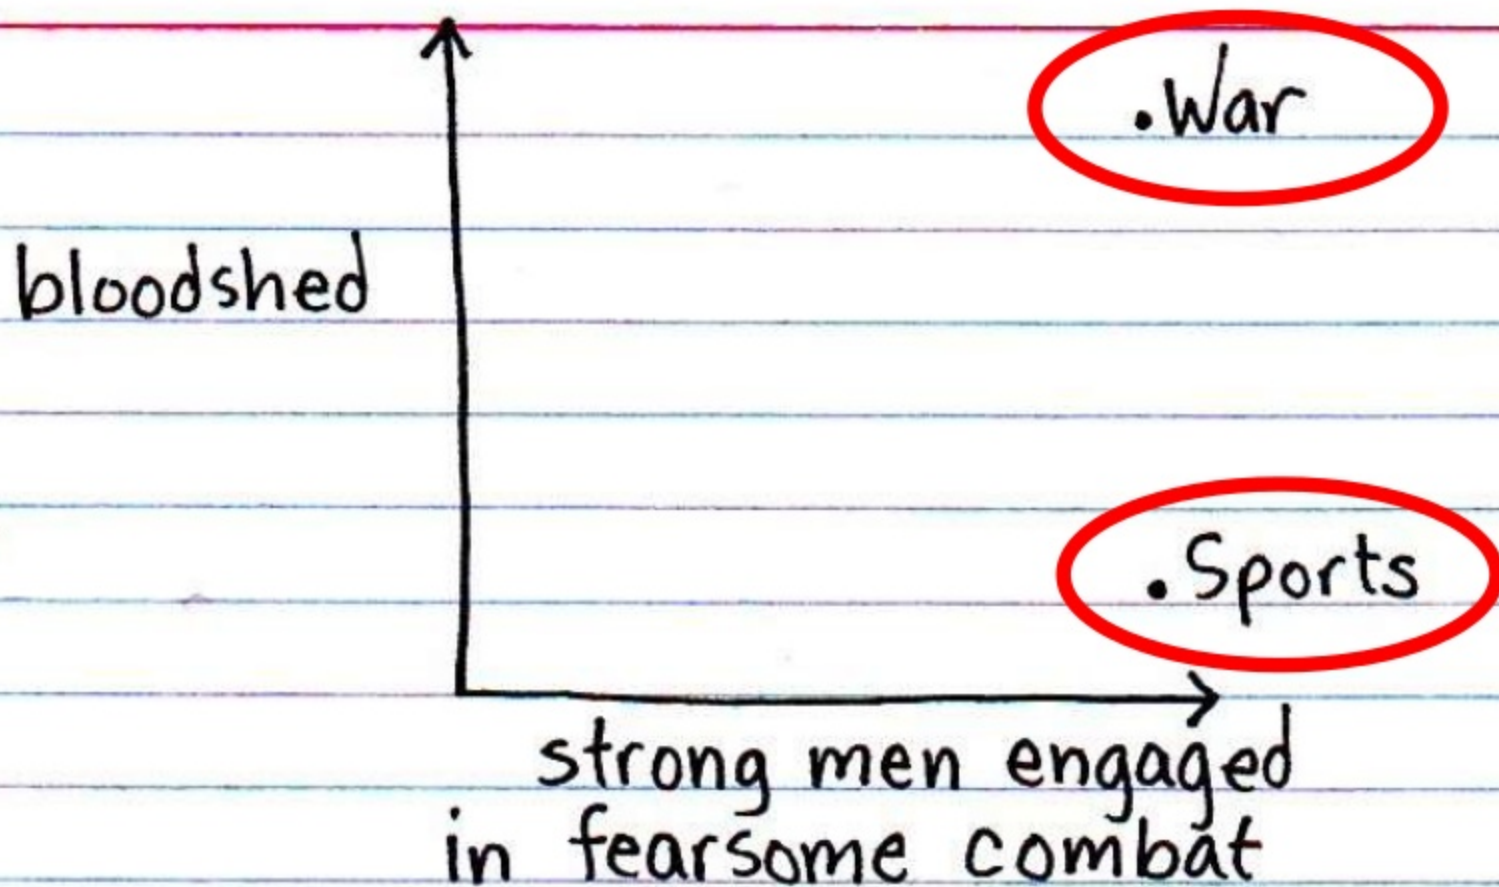 .War
bloodshed
.Sports
strong men engaged
in fearsome combat